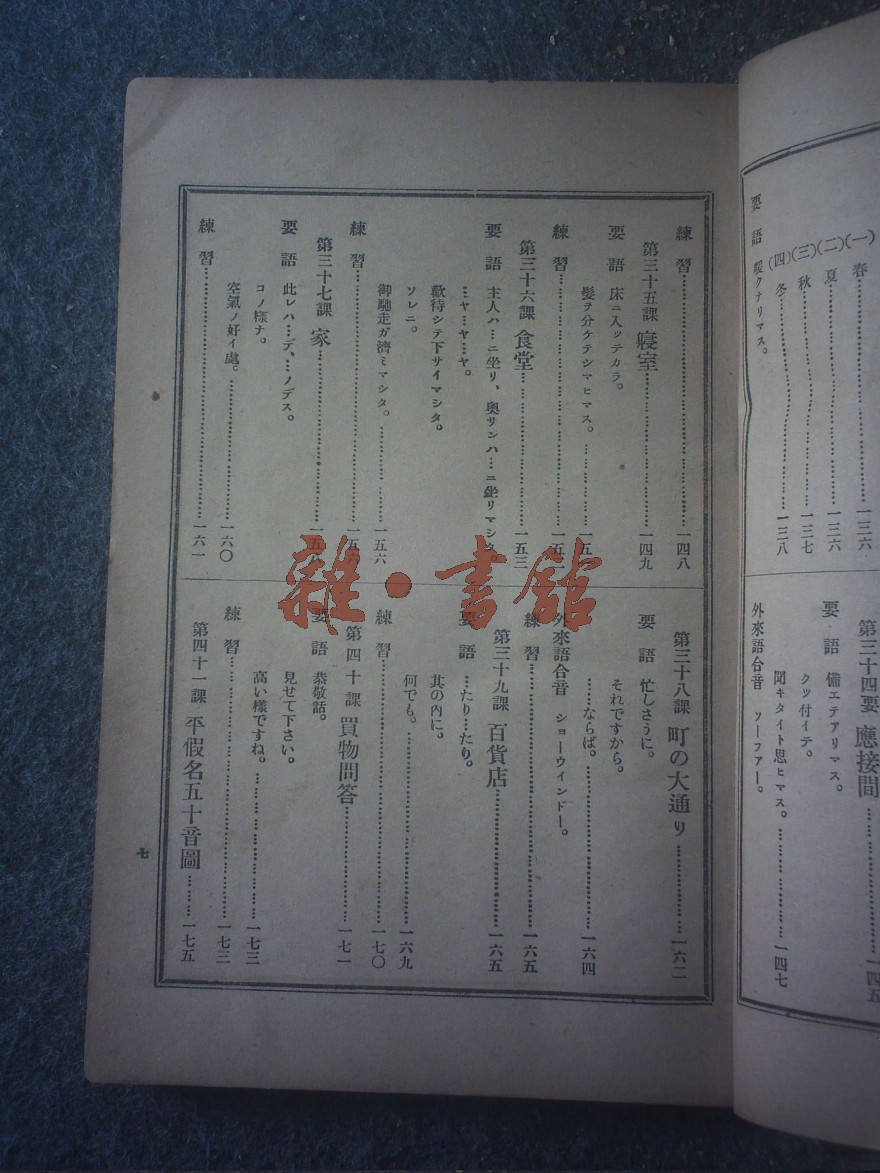 (一)春……………一三六
(二)夏……………一三六
(三)秋……………一三七
(四)冬……………一三八
要語 暖クナリマス。
第三十四 應接間……一四五
要語 備エテアリマス。
クッ付イテ。
聞キタイト思ヒマス。……………一四七
外來語合音 ソーファー。
練習……………一四八
第三十五課 寢室……………一四九
要語 床ニ入ッテカラ。
髮ヲ分ケテシマヒマス。……………一五
練習……………一五
第三十六課 食堂……………一五三
要語 主人ハ…ニ坐リ、奧サンハ…ニ坐リマシタ
…ヤ…ヤ…ヤ。
歡待シテ下サイマシタ。
ソレニ。
御馳走ガ濟ミマシタ。……………一五六
練習……………一五
第三十七課 家……………一五
要語 此レハ…デ、…ノデス。
コノ樣ナ。
空氣ノ好イ處。……………一六〇
練習……………一六一
第三十八課 町の大通り……………一六二
要語 忙しさうに。
それですから。
……ならば。……………一六四
外來語合音 ショーウインドー。
練習……………一六五
第三十九課 百貨店……………一六五
要語 …たり…たり。
其の內に。
何でも。……………一六九
練習……………一七〇
第四十課 買物問答……………一七一
要語 恭敬話。
見せて下さい。
高い樣ですね。……………一七三
練習……………一七三
第四十一課 平假名五十音圖………一七五
七
雜·書館